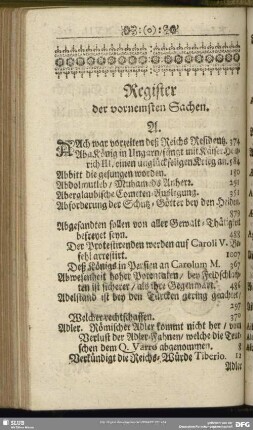 :(o):
Register
der vornemsten Sachen.
A.
Ach war vorzeiten deß Reichs Residentz. 374
Aba König in Ungarn / fängt mit Käiser Hen-
rich III. einen unglückseligen Krieg an. 584
Abbitt die gefangen worden. 180
Abdolmutleb / Muhameds Anherr. 291
Aberglaubische Cometen-Außlegung. 251
Abforderung der Schutz-Götter bey den Heiden.
379
Abgesandten sollen von aller Gewalt-Thätigkeit
befreyet seyn. 488
Der Protestirenden werden auf Caroli V. Be-
fehl arrestirt. 1007
Deß Königs in Persien an Carolum M. 367
Abwesenheit hoher Potentaten / bey Feldschlach-
ten ist sicherer / als ihre Gegenwart. 486
Adelstand ist bey den Türcken gering geachtet /
297
Welcher rechtschaffen. 370
Adler. Römischer Adler kommt nicht her / von
Verlust der Adler-Fahnen / welche die Teut-
schen dem Q. Varro abgenommen. 6
Verkündigt die Reichs-Würde Tiberio. 12
Adler
SLUB
DFG